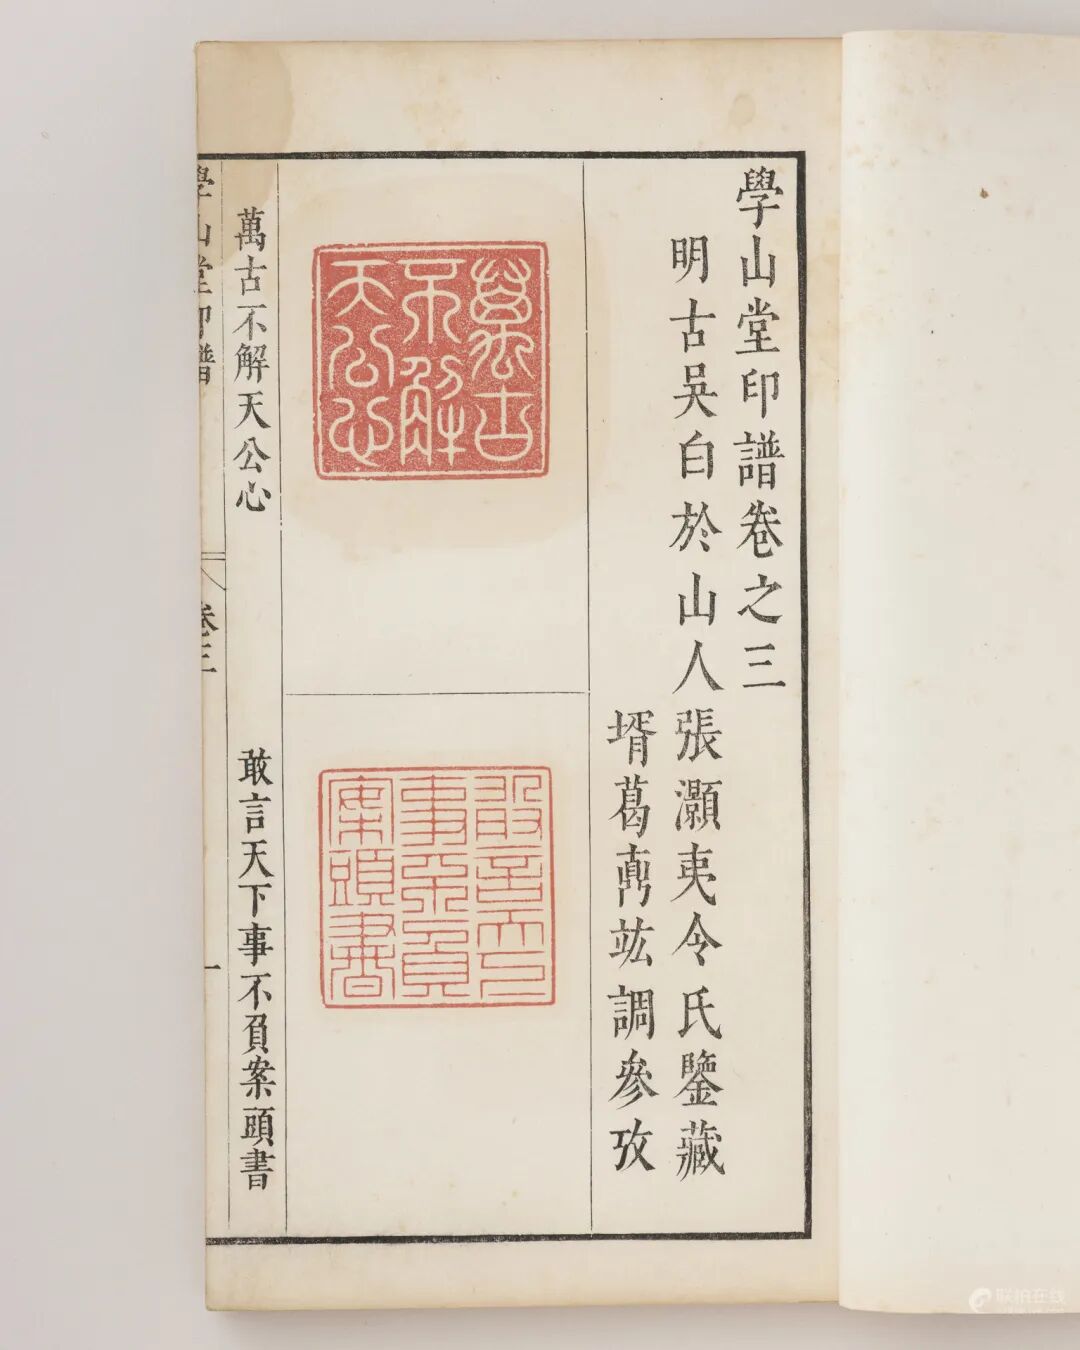 學山堂印譜卷之三
明古吳白於山人張灝夷令氏鑒藏
壻葛鼒竑調參攷
萬古不解天公心
敢言天下事不負案頭書
萬古不解天公心
敢言天下事不負案頭書
學山堂印譜
卷三
一
联拍在线